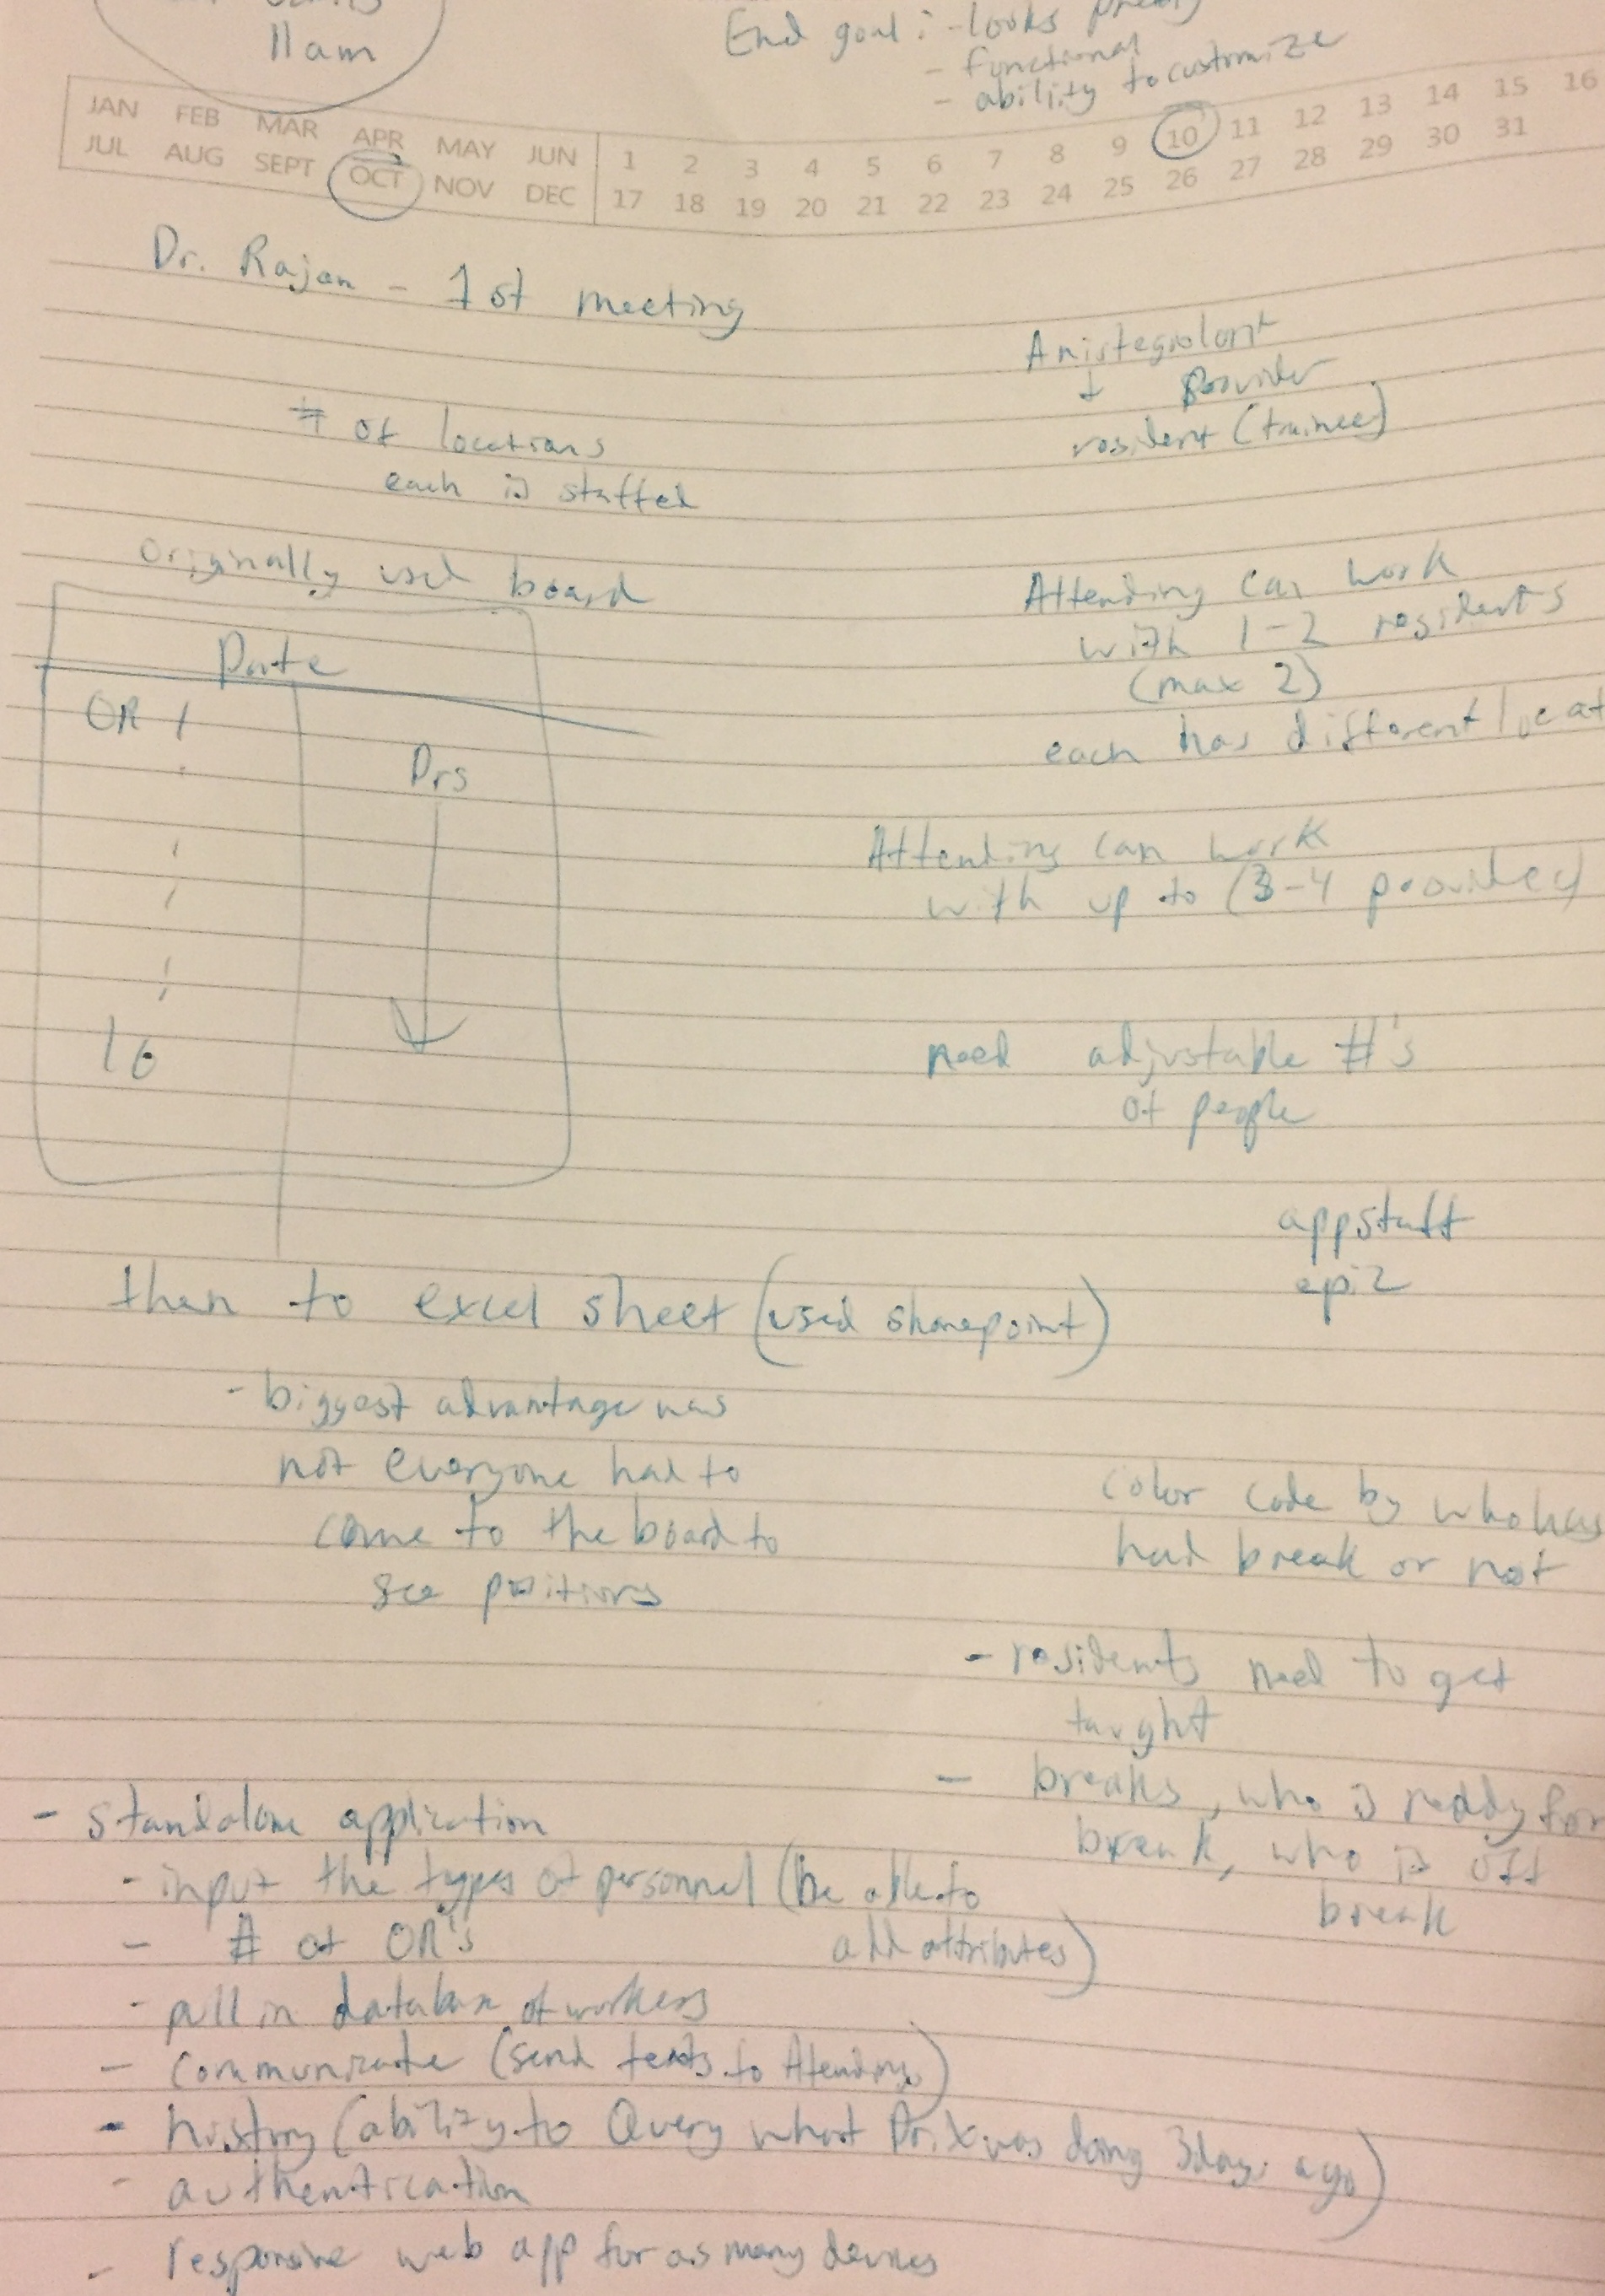 11am
End goal: - looks pretty
- functional
- ability to customize
JAN FEB MAR APR MAY JUN 1 2 3 4 5 6 7 8 9 10 11 12 13 14 15 16
JUL AUG SEPT OCT NOV DEC 17 18 19 20 21 22 23 24 25 26 27 28 29 30 31
Dr. Rajan - 1st meeting
# of locations
each is staffed
originally used board
Date
OR 1
Drs
16
Anistegiolont
↓ provider
resident (trainee)
Attending can work
with 1-2 residents
(max 2)
each has different locat
Attending can work
with up to (3-4 provides)
need adjustable #'s
of people
appstaff
epic
then to excel sheet (used sharepoint)
- biggest advantage was
not everyone had to
come to the board to
see positions
color code by who has
had break or not
- residents need to get
taught
- breaks, who is ready for
break, who is off
break
- standalone application
- input the types of personnel (be able to
add attributes)
- # of OR's
- pull in database of workers
- communicate (send texts to Attendings)
- history (ability to Query what Dr. X was doing 3 days ago)
- authentication
- responsive web app for as many devices